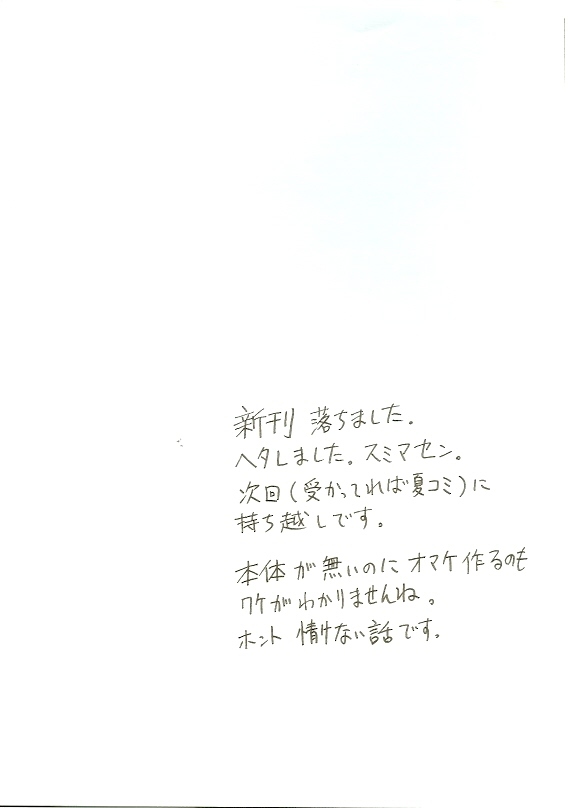 新刊 落ちました.
ヘタしました。スミマセン。
次回(受かってれば夏コミ)に
持ち越しです。
本体が無いのにオマケ作るのも
ワケがわかりませんね。
ホント 情けない話です。